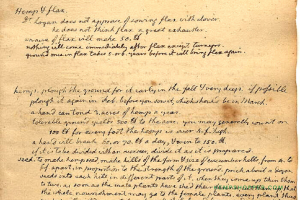 Hemp & flax.
Dr Logan does not approve of sowing flax with clover.
he does not think flax a great exhauster.
an acre of flax will make 50. lb
nothing will come immediately after flax except turneps.
ground once in flax takes 5. or 6. years before it will bring flax again.
hemp. plough the ground for it early in the fall & very deep. if possible
plough it again in Feb. before you sow it, which should be in March.
a hand can tend 3. acres of hemp a year.
tolerable ground yields 500. lb to the acre. you may generally count on
100 lb for every foot the hemp is over 4. f. high.
a hand will break 60. or 70. lb a day, & even to 150. lb.
if it is divided with an overseer, divide it as it is prepared.
seed. to make hemp seed, make hills of the form & size of cucumber hills, from 4. to
6 f. apart, in proportion to the strength of the ground. prick about a dozen
seeds into each hill in different parts of it. when they come up thin them
to two. as soon as the male plants have shed their
the whole nourishment may go to the female plants. every plant thus